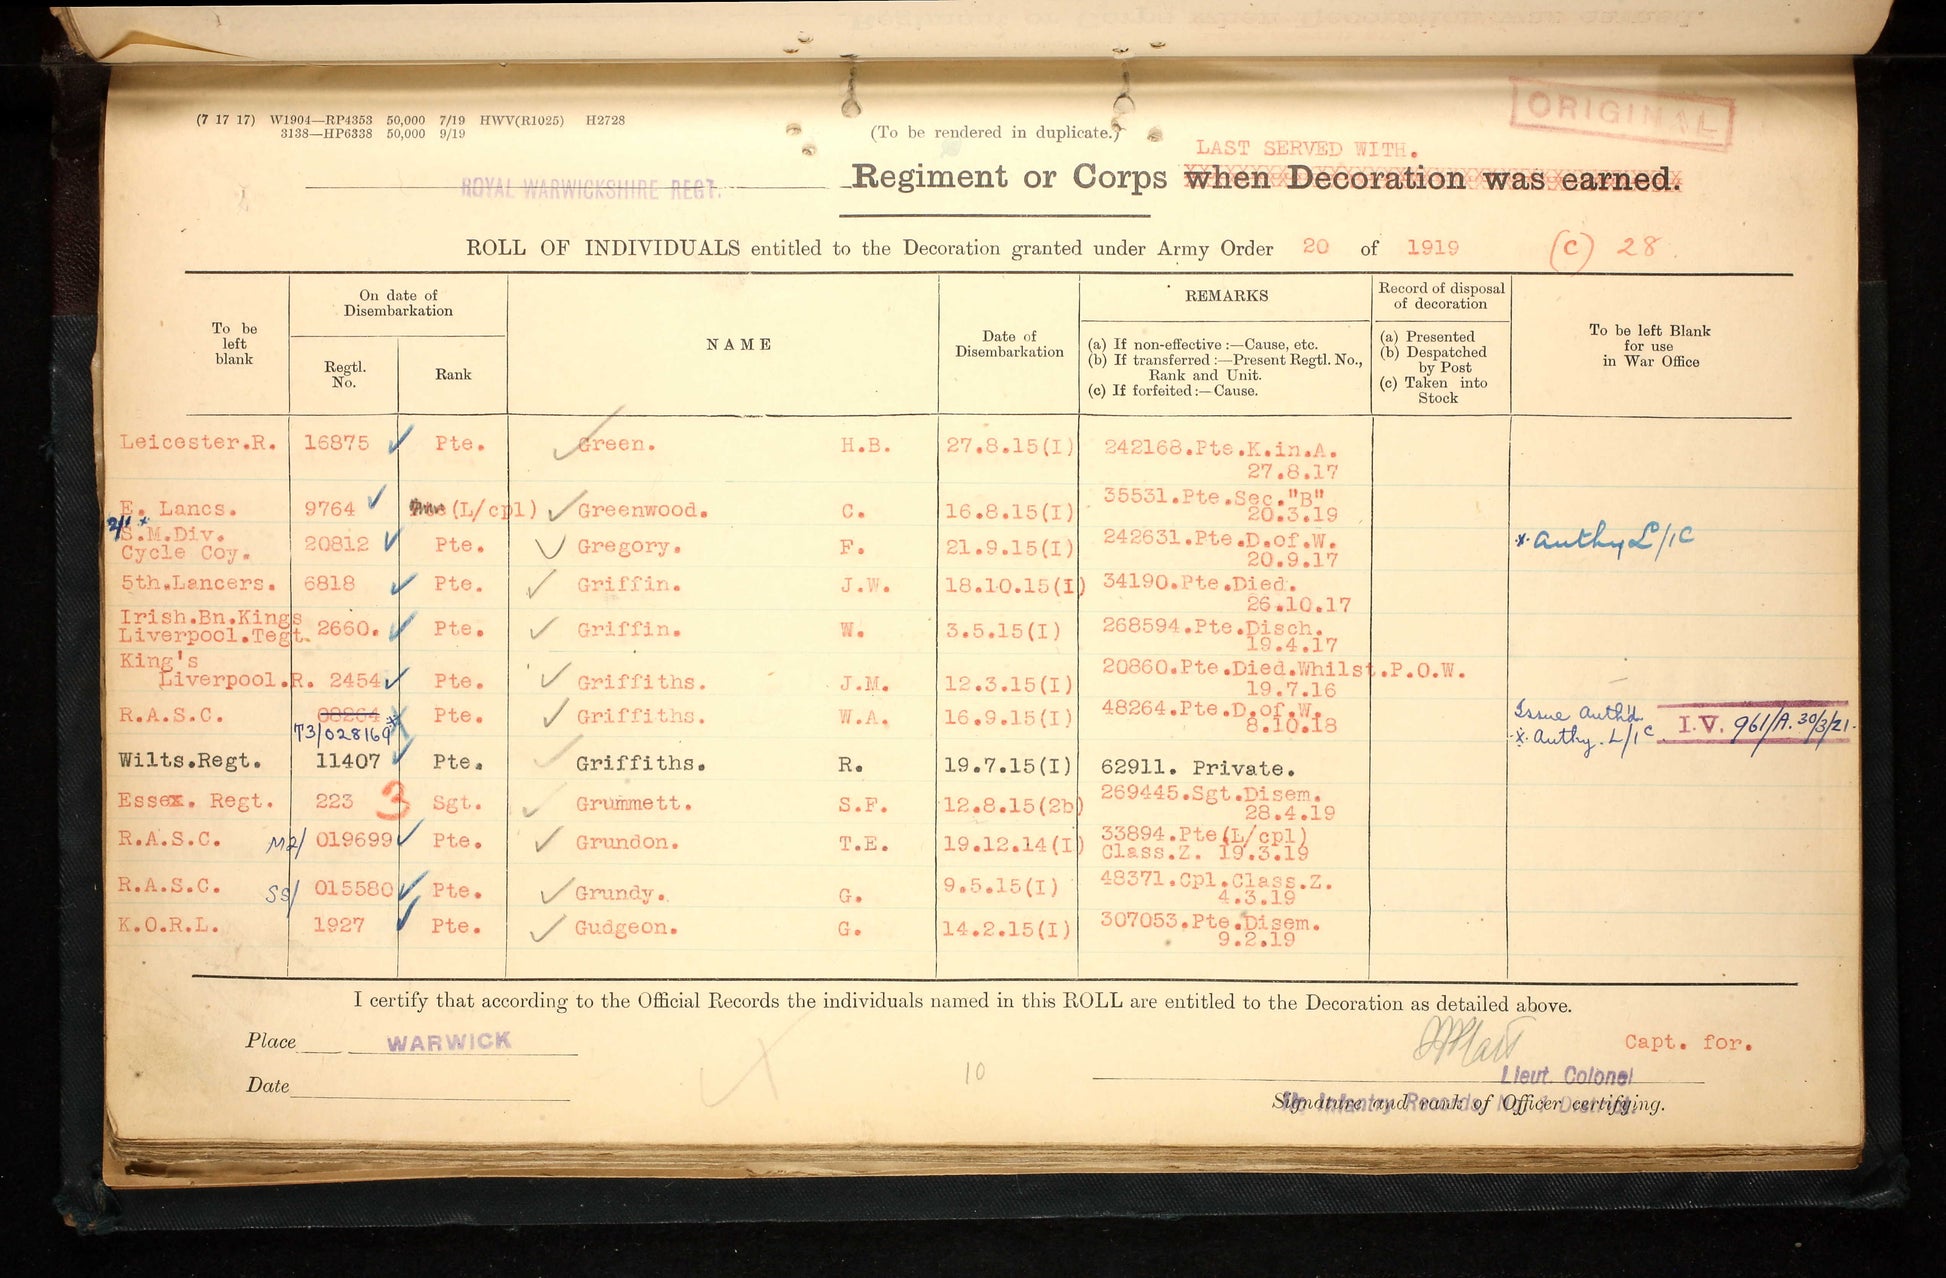 ORIGINAL
(7 17 17) W1904—RP4353 50,000 7/19 HWV(R1025) H2728
3138—HP6338 50,000 9/19
(To be rendered in duplicate.)
LAST SERVED WITH.
ROYAL WARWICKSHIRE REGT. Regiment or Corps when Decoration was earned.
ROLL OF INDIVIDUALS entitled to the Decoration granted under Army Order 20 of 1919 (C) 28.
To be left blank
On date of Disembarkation
Regtl. No.
Rank
NAME
Date of Disembarkation
REMARKS
(a) If non-effective :—Cause, etc.
(b) If transferred :—Present Regtl. No., Rank and Unit.
(c) If forfeited :—Cause.
Record of disposal of decoration
(a) Presented
(b) Despatched by Post
(c) Taken into Stock
To be left Blank for use in War Office
Leicester.R. 16875 Pte. Green. H.B. 27.8.15(I) 242168.Pte.K.in.A.
27.8.17
E. Lancs. 9764 (L/cpl) Greenwood. C. 16.8.15(I) 35531.Pte.Sec."B"
20.3.19
S.M.Div.
Cycle Coy. 20812 Pte. Gregory. F. 21.9.15(I) 242631.Pte.D.of.W. x Authy L/1C
20.9.17
5th.Lancers. 6818 Pte. Griffin. J.W. 18.10.15(I) 34190.Pte.Died.
26.10.17
Irish.Bn.Kings
Liverpool.Tegt. 2660. Pte. Griffin. W. 3.5.15(I) 268594.Pte.Disch.
19.4.17
King's
Liverpool.R. 2454 Pte. Griffiths. J.M. 12.3.15(I) 20860.Pte.Died.Whilst.P.O.W.
19.7.16
R.A.S.C. 08264 Pte. Griffiths. W.A. 16.9.15(I) 48264.Pte.D.of.W. Issue Authd I.V. 961/A. 30/3/21.
T3/028169 x 8.10.18 x Authy. L/1C
Wilts.Regt. 11407 Pte. Griffiths. R. 19.7.15(I) 62911. Private.
Essex. Regt. 223 3 Sgt. Grummett. S.F. 12.8.15(2b) 269445.Sgt.Disem.
28.4.19
R.A.S.C. M2/ 019699 Pte. Grundon. T.E. 19.12.14(I) 33894.Pte(L/cpl)
Class.Z. 19.3.19
R.A.S.C. SS/ 015580 Pte. Grundy. G. 9.5.15(I) 48371.Cpl.Class.Z.
4.3.19
K.O.R.L. 1927 Pte. Gudgeon. G. 14.2.15(I) 307053.Pte.Disem.
9.2.19
I certify that according to the Official Records the individuals named in this ROLL are entitled to the Decoration as detailed above.
Place WARWICK
Capt. for.
Date
10
Lieut. Colonel
Signature and rank of Officer certifying.